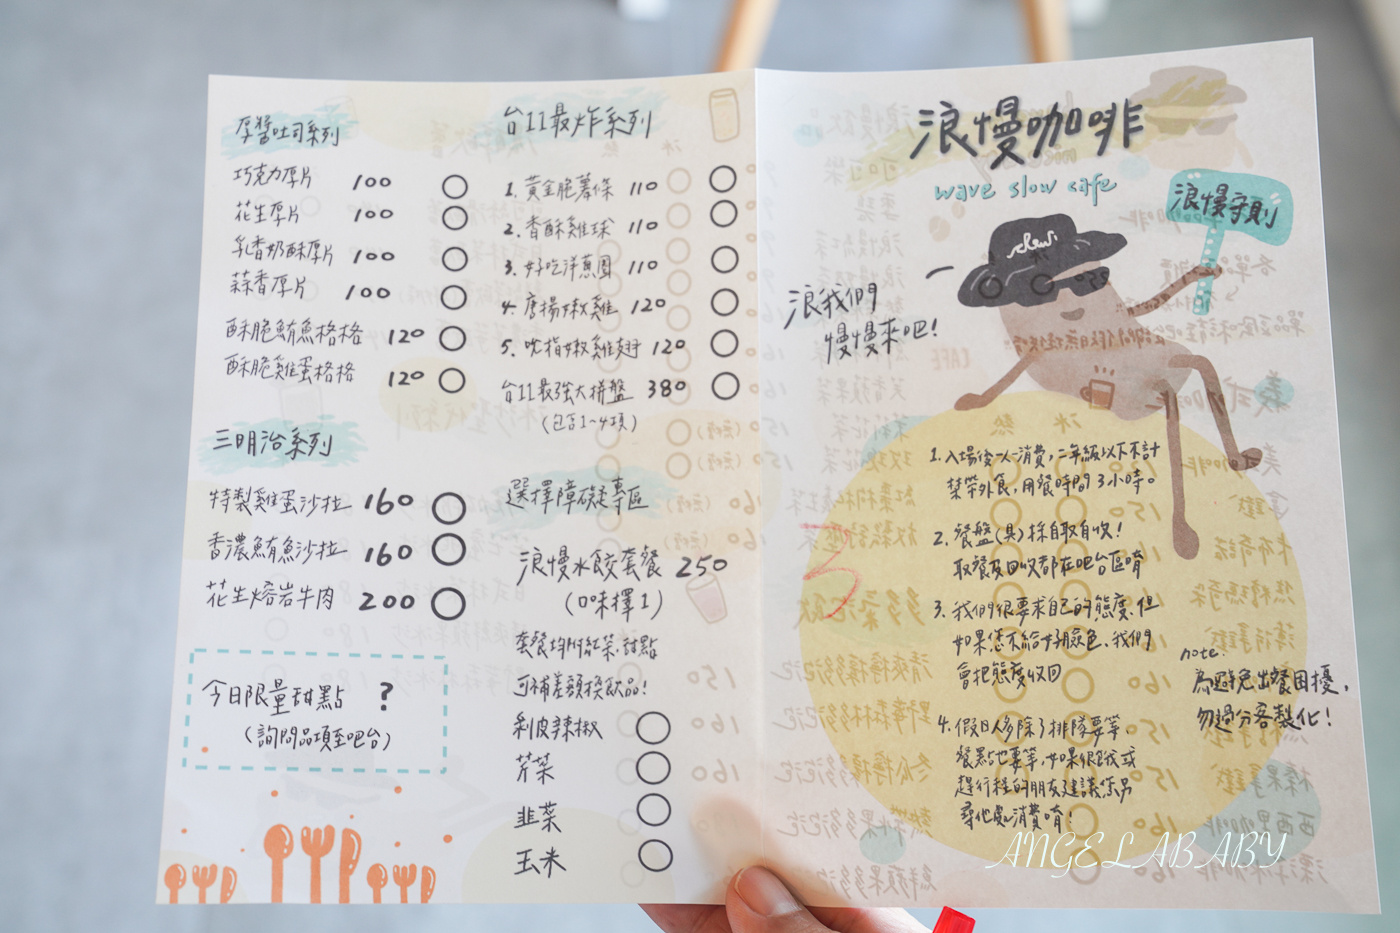 厚醬吐司系列
巧克力厚片 100
花生厚片 100
乳香奶酥厚片 100
蒜香厚片 100
酥脆鮪魚格格 120
酥脆雞蛋格格 120
三明治系列
特製雞蛋沙拉 160
香濃鮪魚沙拉 160
花生熔岩牛肉 200
今日限量甜點 ?
(詢問品項至吧台)
台11最炸系列
1. 黃金脆薯條 110
2. 香酥雞球 110
3. 好吃洋蔥圈 110
4. 唐揚椒雞 120
5. 吮指椒雞翅 120
台11最強大拼盤 380
(包含1~4項)
選擇障礙專區
浪慢水餃套餐 250
(口味擇1)
套餐均附紅茶.甜點
可補差額換飲品!
剝皮辣椒
芹菜
韭菜
玉米
浪慢咖啡
wave slow cafe
浪慢守則
chew.
浪我們
慢慢來吧!
1. 入場後一人一消費,二年級以下不計
禁帶外食,用餐時間3小時。
2. 餐盤(具)採自取自收!
取餐及回收都在吧台區唷
3. 我們很要求自己的態度.但
如果您不給好臉色.我們
會把態度收回
4. 假日人多除了排隊要等.
餐點也要等.如果很餓或
趕行程的朋友建議您另
尋他處消費唷!
note.
為避免出餐困擾,
勿過分客製化!
3
ANGELABABY